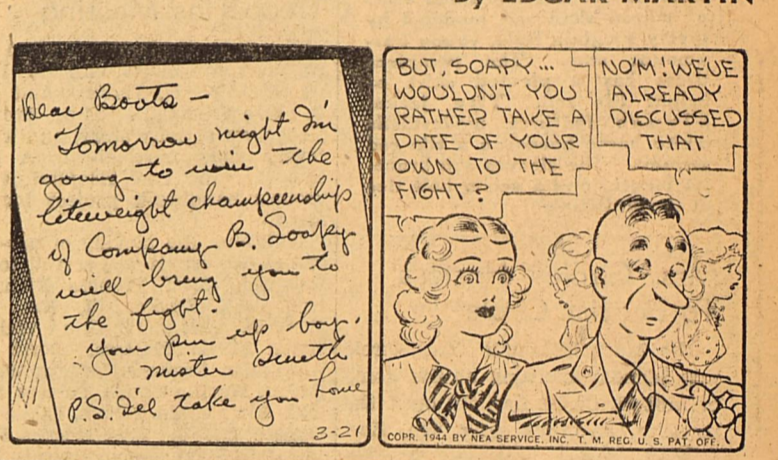 By EDGAR MARTIN
Dear Boots —
Tomorrow night I'm
going to win the
liteweight champeenship
of Company B. Soapy
will bring you to
the fight.
Your pin up boy,
Mister Smith
P.S. I'll take you home
3-21
BUT, SOAPY...
WOULDN'T YOU
RATHER TAKE A
DATE OF YOUR
OWN TO THE
FIGHT?
NO'M! WE'VE
ALREADY
DISCUSSED
THAT
COPR. 1944 BY NEA SERVICE, INC. T. M. REG. U. S. PAT. OFF.